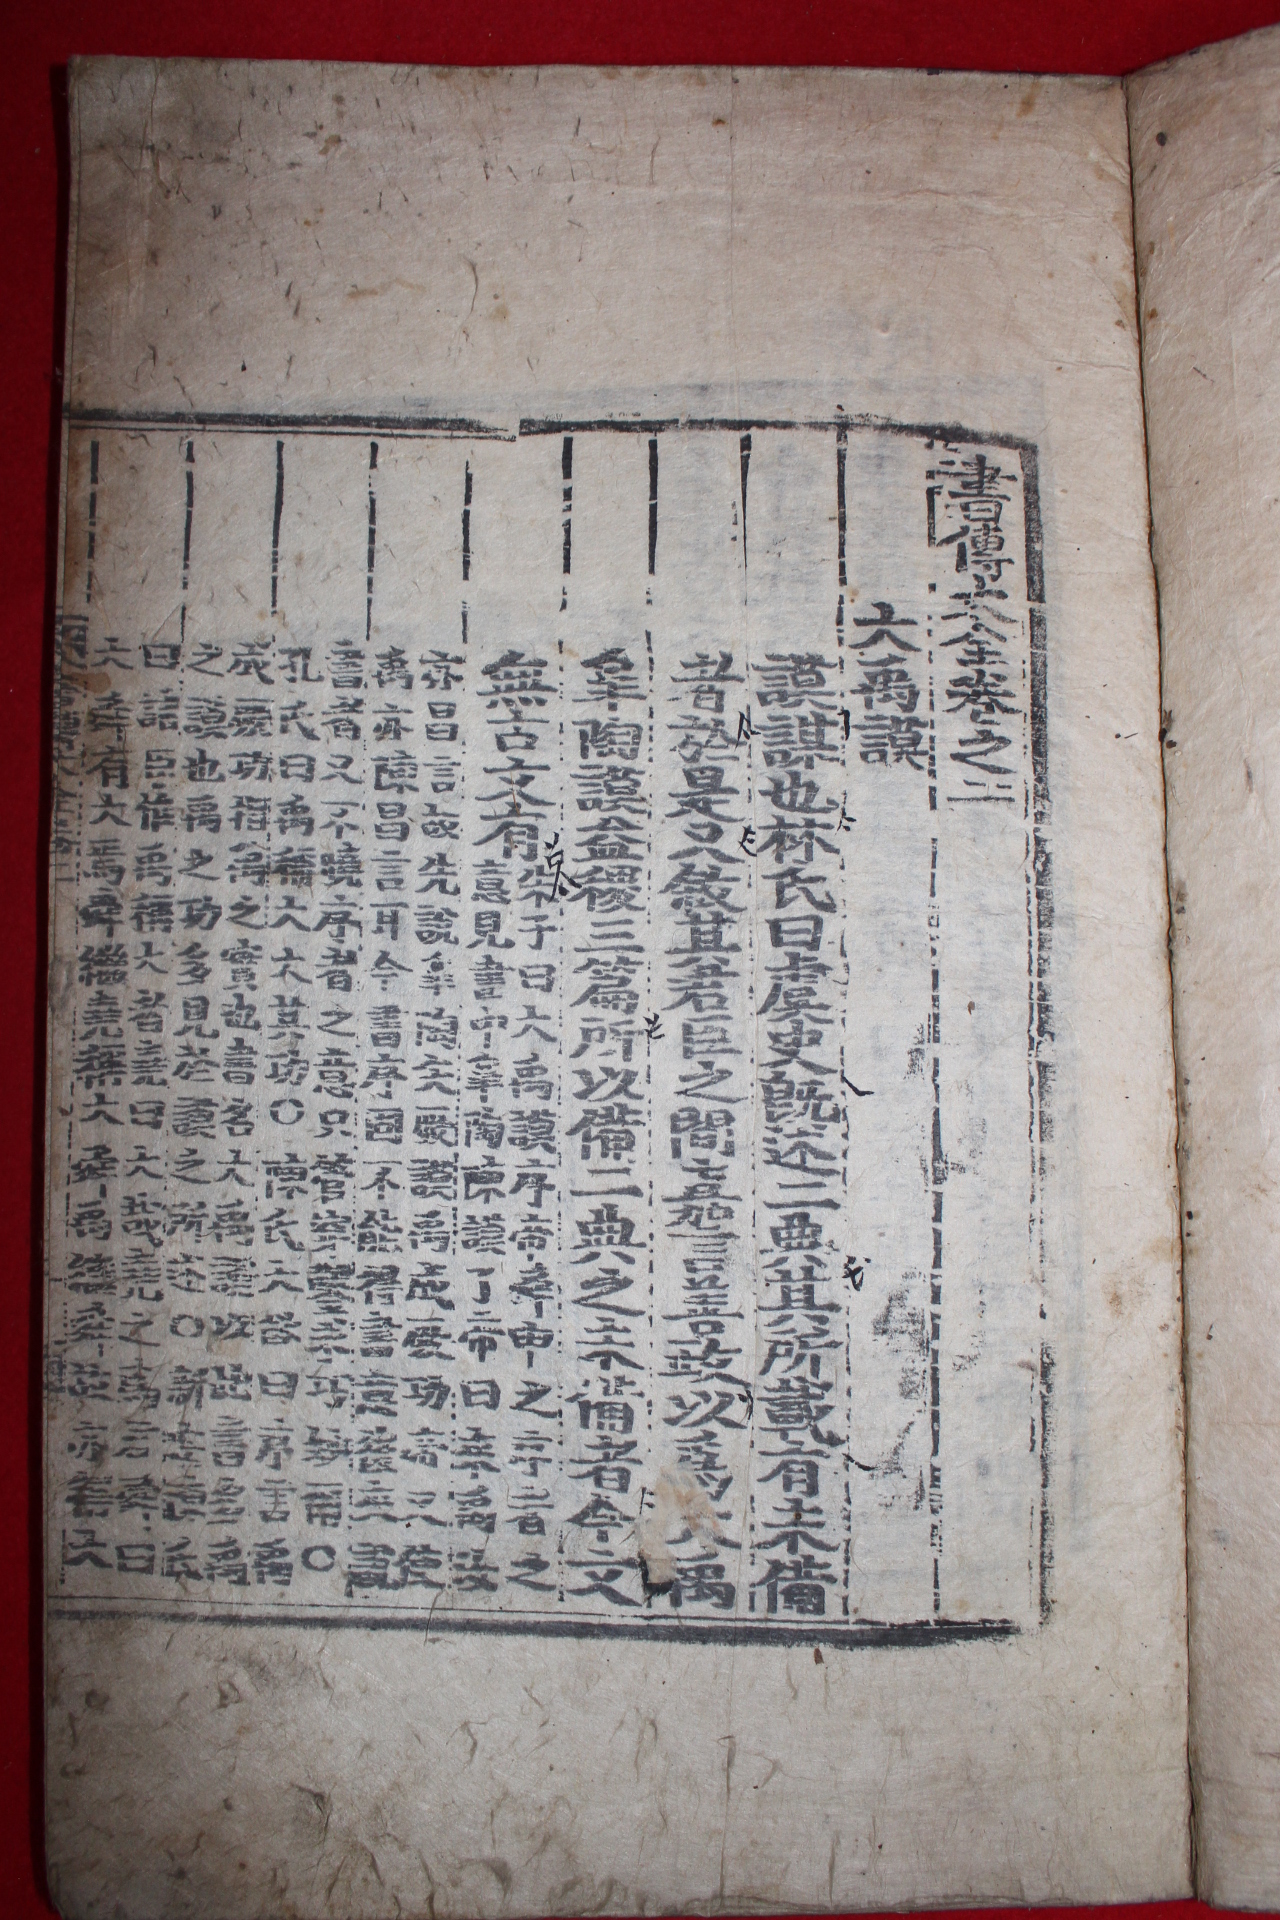 書傳大全卷之二
大禹謨
謨謀也林氏曰虞史既述二典其所載有未備
者於是又敘其君臣之間嘉言善政以爲大禹
皐陶謨益稷三篇所以備二典之未備者今文
無古文有朱子曰大禹謨序帝舜申之序者之
意見書中皐陶陳謨了帝曰來禹汝
亦昌言故先說皐陶矢厥謨禹成厥功帝又使
禹亦陳昌言耳今書序固不能得書意後來說
書者又不曉序者之意只管穿鑿求巧妙爾○
孔氏曰禹稱大大其功○陳氏大猷曰序言禹
成厥功指禹之實也書名大禹謨以此言禹
之謨也禹之功多見於謨之所○新安陳氏
曰諸臣惟禹稱大者堯曰大哉堯之爲君舜曰
大舜有大焉舜繼堯稱大舜禹繼舜故亦稱大